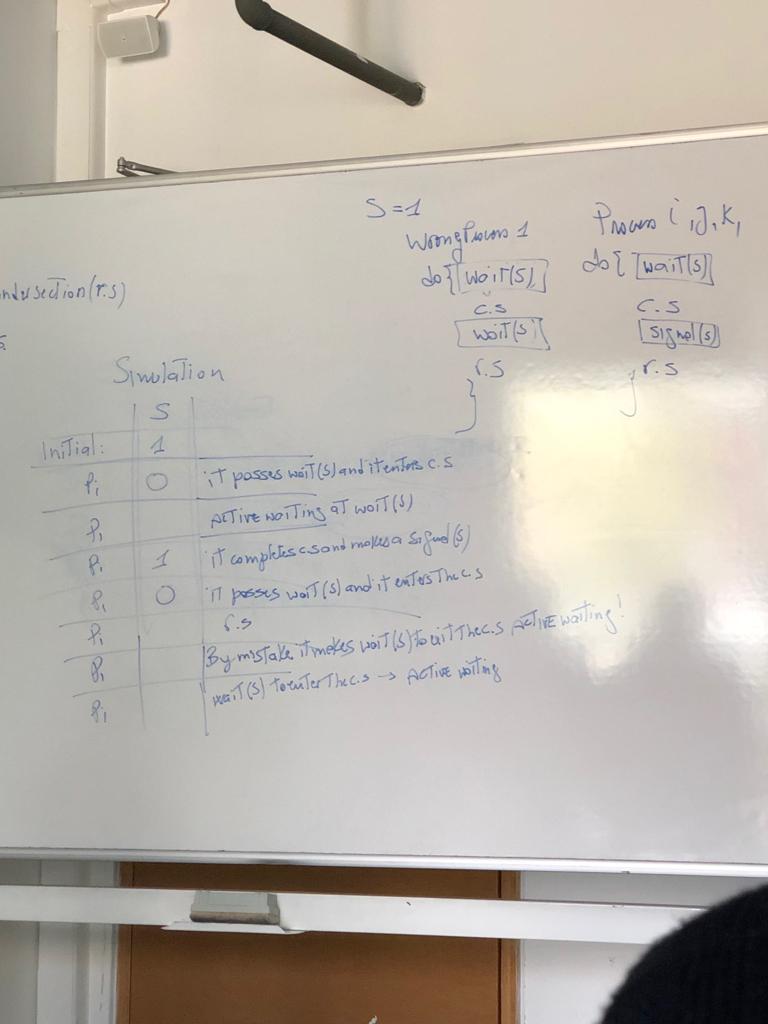 S=1
Wrong Process 1
do{ wait(s)
c.s
wait(s)
r.s
}
Process i, j, k,
do{ wait(s)
c.s
signal(s)
} r.s
section(r.s)
Simulation
S
Initial: 1
Pi 0 it passes wait(s) and it enters c.s
P1 Active waiting at wait(s)
Pi 1 it completes c.s and makes a signal(s)
P1 0 it passes wait(s) and it enters the c.s
Pi r.s
P1 By mistake it makes wait(s) to exit the c.s Active waiting!
Pi wait(s) to enter the c.s → Active waiting